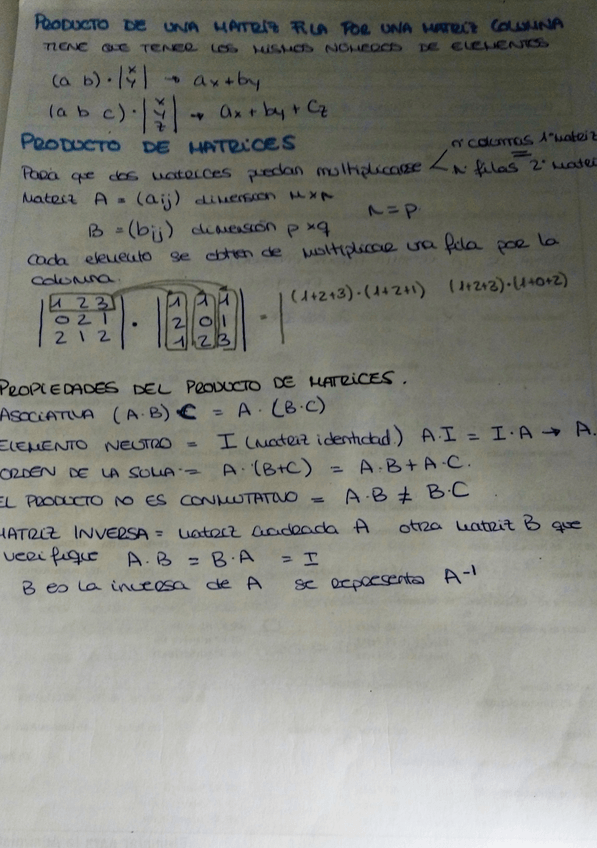 PRODUCTO DE UNA MATRIZ FILA POR UNA MATRIZ COLUMNA
TIENE QUE TENER LOS MISMOS NÚMEROS DE ELEMENTOS
(a b) · |x y| → ax+by
(a b c) · |x y z| → ax+by+cz
PRODUCTO DE MATRICES
Para que dos matrices puedan multiplicarse < nº columnas 1ª matriz = Nº filas 2ª matri
Matriz A = (aij) dimension M×N
N = P
B = (bij) dimensión p×q
Cada elemento se obtien de multiplicar una fila por la
columna.
|1 2 3| · |1 1 1| = |(1+2+3)·(1+2+1) (1+2+3)·(1+0+2)
|0 2 1| |2 0 1|
|2 1 2| |1 2 3|
PROPIEDADES DEL PRODUCTO DE MATRICES.
ASOCIATIVA (A·B) C = A · (B·C)
ELEMENTO NEUTRO = I (Matriz identidad) A.I = I·A → A.
ORDEN DE LA SUMA = A·(B+C) = A·B + A·C.
EL PRODUCTO NO ES CONMUTATIVO = A·B ≠ B·C
MATRIZ INVERSA = Matriz cuadrada A otra Matriz B que
verifique A·B = B·A = I
B es la inversa de A se representa A⁻¹